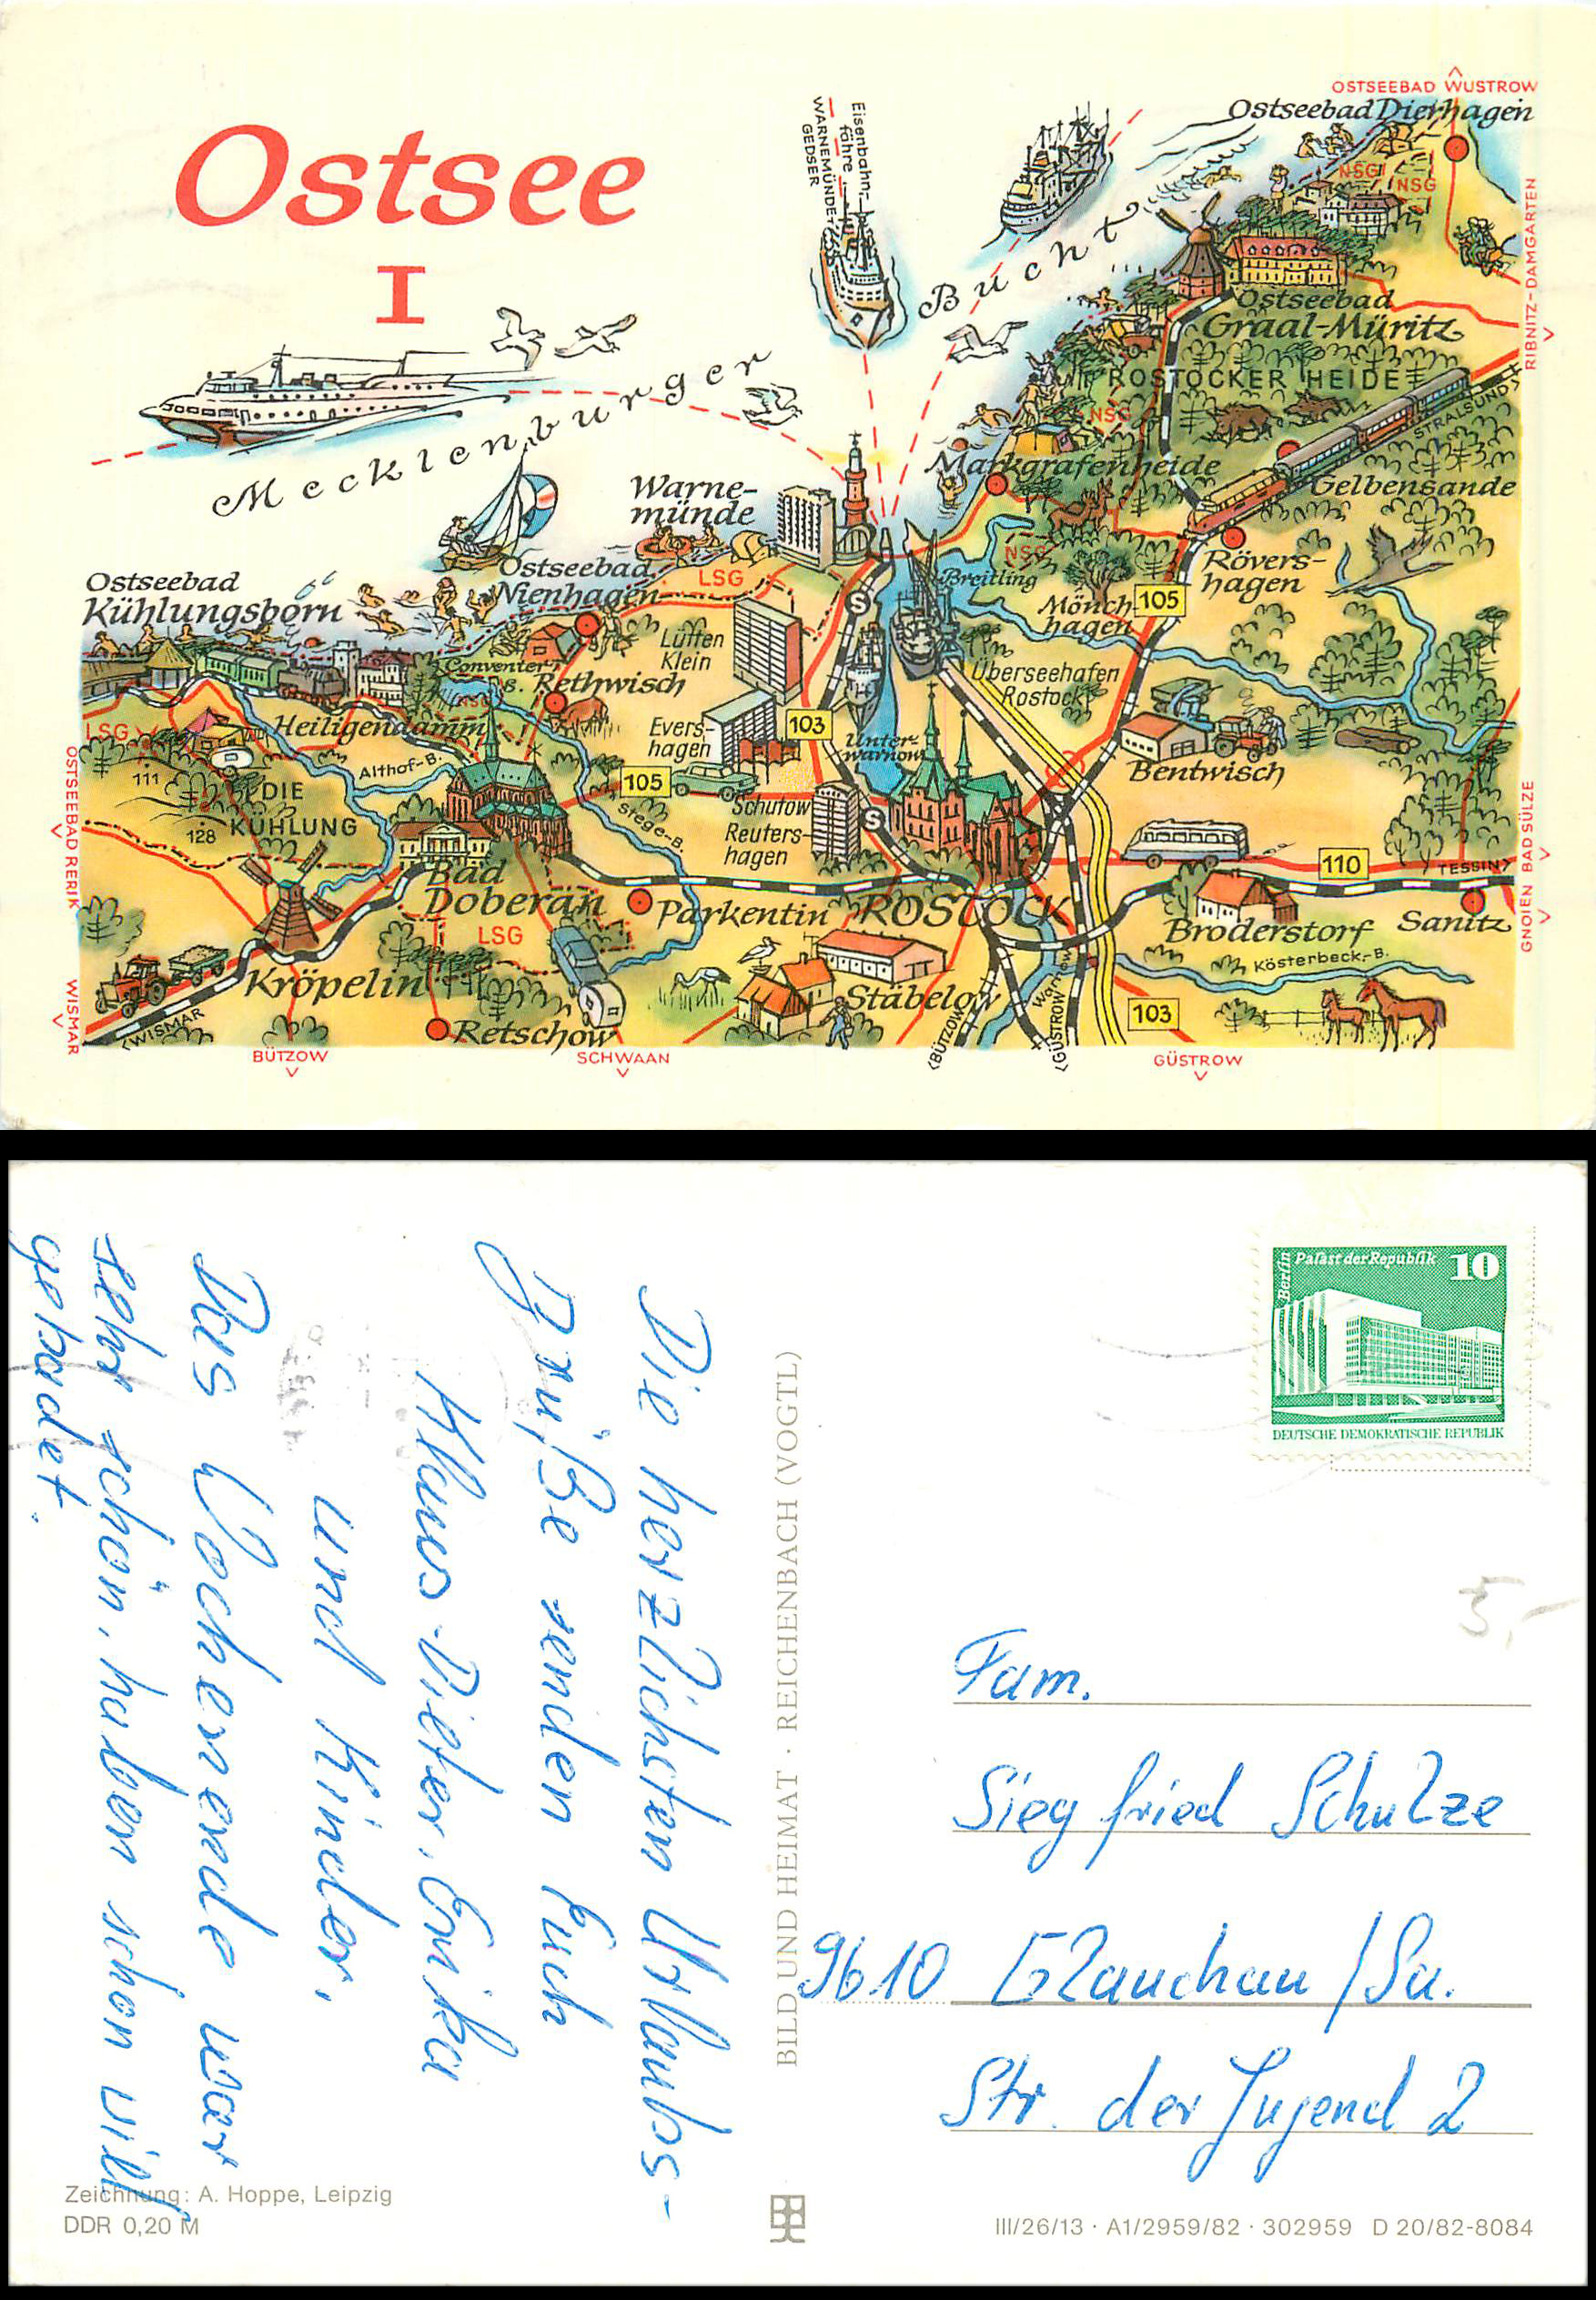 Ostsee
I
Mecklenburger Bucht
Eisenbahn-
fähre
WARNEMÜNDE-
GEDSER
OSTSEEBAD WUSTROW
Ostseebad Dierhagen
NSG
NSG
RIBNITZ-DAMGARTEN
Ostseebad
Graal-Müritz
ROSTOCKER HEIDE
NSG
STRALSUND
Markgrafenheide
Gelbensande
Warne-
münde
NSG
Breitling
Rövers-
hagen
Mönch-
hagen
105
Ostseebad
Nienhagen
LSG
Ostseebad
Kühlungsborn
S
Lütten
Klein
Conventer
S.
NSG
Rethwisch
Überseehafen
Rostock
LSG
Heiligendamm
Evers-
hagen
103
Unter-
warnow
Bentwisch
111
Althof-B.
DIE
KÜHLUNG
128
105
Stege-B.
Schutow
Reuters-
hagen
S
110
TESSIN
OSTSEEBAD RERIK
GNOIEN BAD SÜLZE
Bad
Doberan
Parkentin
ROSTOCK
Broderstorf
Sanitz
LSG
Kösterbeck-B.
Kröpelin
Stäbelow
Warnow
103
WISMAR
WISMAR
Retschow
BÜTZOW
GÜSTROW
BÜTZOW
SCHWAAN
GÜSTROW
Die herzlichsten Urlaubs-
grüße senden Euch
Klaus-Dieter, Erika
und Kinder.
Das Wochenende war
sehr schön, haben schon viel
gebadet.
BILD UND HEIMAT · REICHENBACH (VOGTL)
Berlin
Palast der Republik
10
DEUTSCHE DEMOKRATISCHE REPUBLIK
5,-
Fam.
Siegfried Schulze
9610 Glauchau /Sa.
Str. der Jugend 2
Zeichnung: A. Hoppe, Leipzig
DDR 0,20 M
III/26/13 · A1/2959/82 · 302959 D 20/82-8084